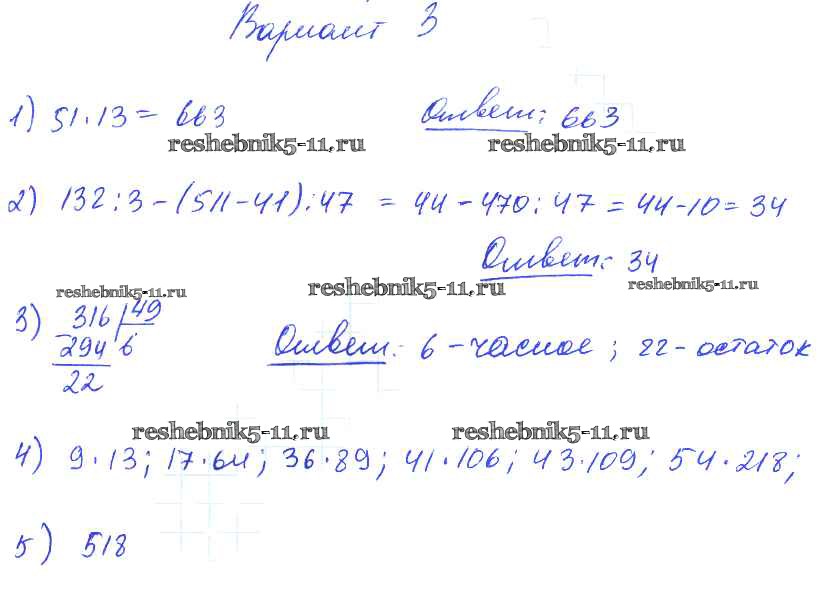 Вариант 3
1) 51·13 = 663 Ответ: 663
reshebnik5-11.ru reshebnik5-11.ru
2) 132:3-(511-41):47 = 44-470:47 = 44-10 = 34
Ответ: 34
reshebnik5-11.ru reshebnik5-11.ru reshebnik5-11.ru
3) 316 49
294 6 Ответ: 6 - часное; 22 - остаток
22
reshebnik5-11.ru reshebnik5-11.ru
4) 9·13; 17·64; 36·89; 41·106; 43·109; 54·218;
5) 518